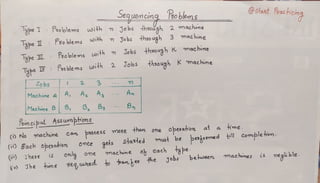 Sequencing Problems
@Start Practicing
Type I : Problems with n Jobs through 2 machine
Type II : Problems with n Jobs through 3 machine
Type III : Problems with n Jobs through K machine
Type IV : Problems with 2 Jobs through K machine
Jobs 1 2 3 ... n
Machine A A₁ A₂ A₃ ... An
Machine B B₁ B₂ B₃ ... Bn
Principal Assumptions
(i) No machine can process more than one operation at a time.
(ii) Each operation once gets started must be performed till completion.
(iii) There is only one machine of each type
(iv) The time required to transfer the jobs between machines is neglible.